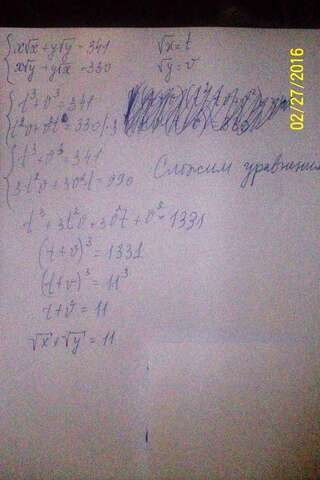 x√x + y√y = 341 √x = t
x√y + y√x = 330 √y = v
t³ + v³ = 341
t²v + v²t = 330 | · 3
t³ + v³ = 341
3t²v + 3v²t = 990 Сложим уравнения
t³ + 3t²v + 3v²t + v³ = 1331
(t+v)³ = 1331
(t+v)³ = 11³
t + v = 11
√x + √y = 11
02/27/2016